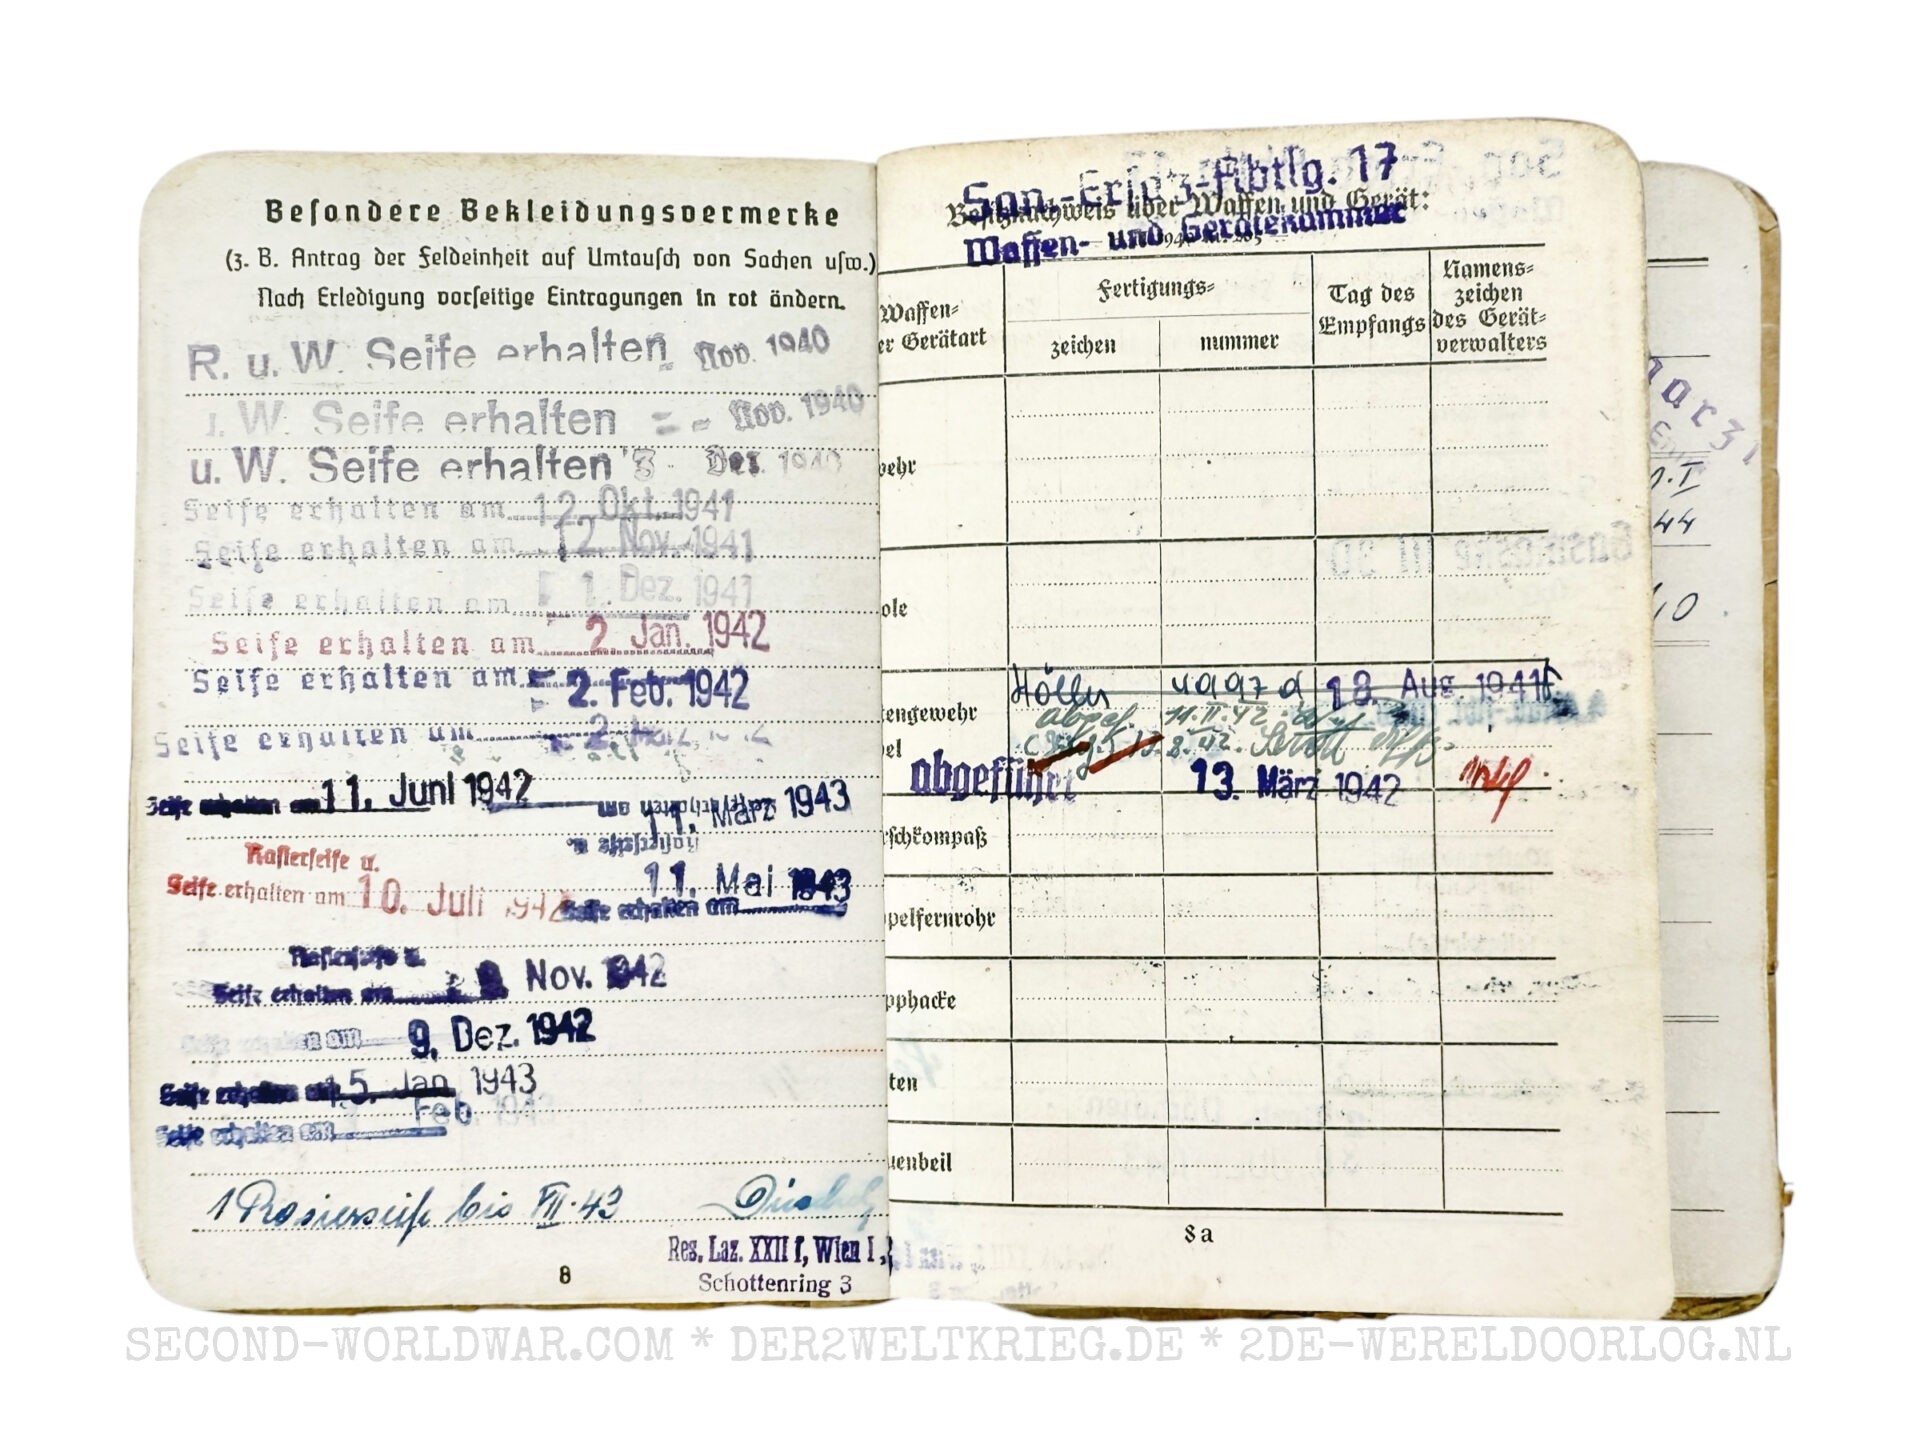 Besondere Bekleidungsvermerke
(z. B. Antrag der Feldeinheit auf Umtausch von Sachen usw.)
Nach Erledigung vorseitige Eintragungen in rot ändern.
R. u. W. Seife erhalten Nov. 1940
W. Seife erhalten - Nov. 1940
u. W. Seife erhalten Dez. 1940
Seife erhalten am 12. Okt. 1941
Seife erhalten am 12. Nov. 1941
Seife erhalten am 1. Dez. 1941
Seife erhalten am 2. Jan. 1942
Seife erhalten am 2. Feb. 1942
Seife erhalten am 2. März
Seife erhalten am 11. Juni 1942
11. März 1943
Rasierseife u.
Seife erhalten am 10. Juli 1942
11. Mai 1943
Seife erhalten am
Rasierseife u.
Seife erhalten am Nov. 1942
Seife erhalten am 9. Dez. 1942
Seife erhalten am 15. Jan 1943
Seife erhalten am Feb. 1943
1 Rasierseife bis VII. 43
Res. Laz. XXII f, Wien I,
Schottenring 3
8
San.-Ersatz-Abtlg. 17
Besitznachweis über Waffen und Gerät:
Waffen- und Gerätekammer
Waffen-
er Gerätart
Fertigungs-
zeichen
nummer
Tag des
Empfangs
Namens-
zeichen
des Gerät-
verwalters
ehr
ole
tengewehr
18. Aug. 1941
abgef. 11. II. 42
el
abgeführt 13. März 1942
rschkompaß
pelfernrohr
pphacke
ten
uenbeil
8a
44
SECOND-WORLDWAR.COM * DER2WELTKRIEG.DE * 2DE-WERELDOORLOG.NL